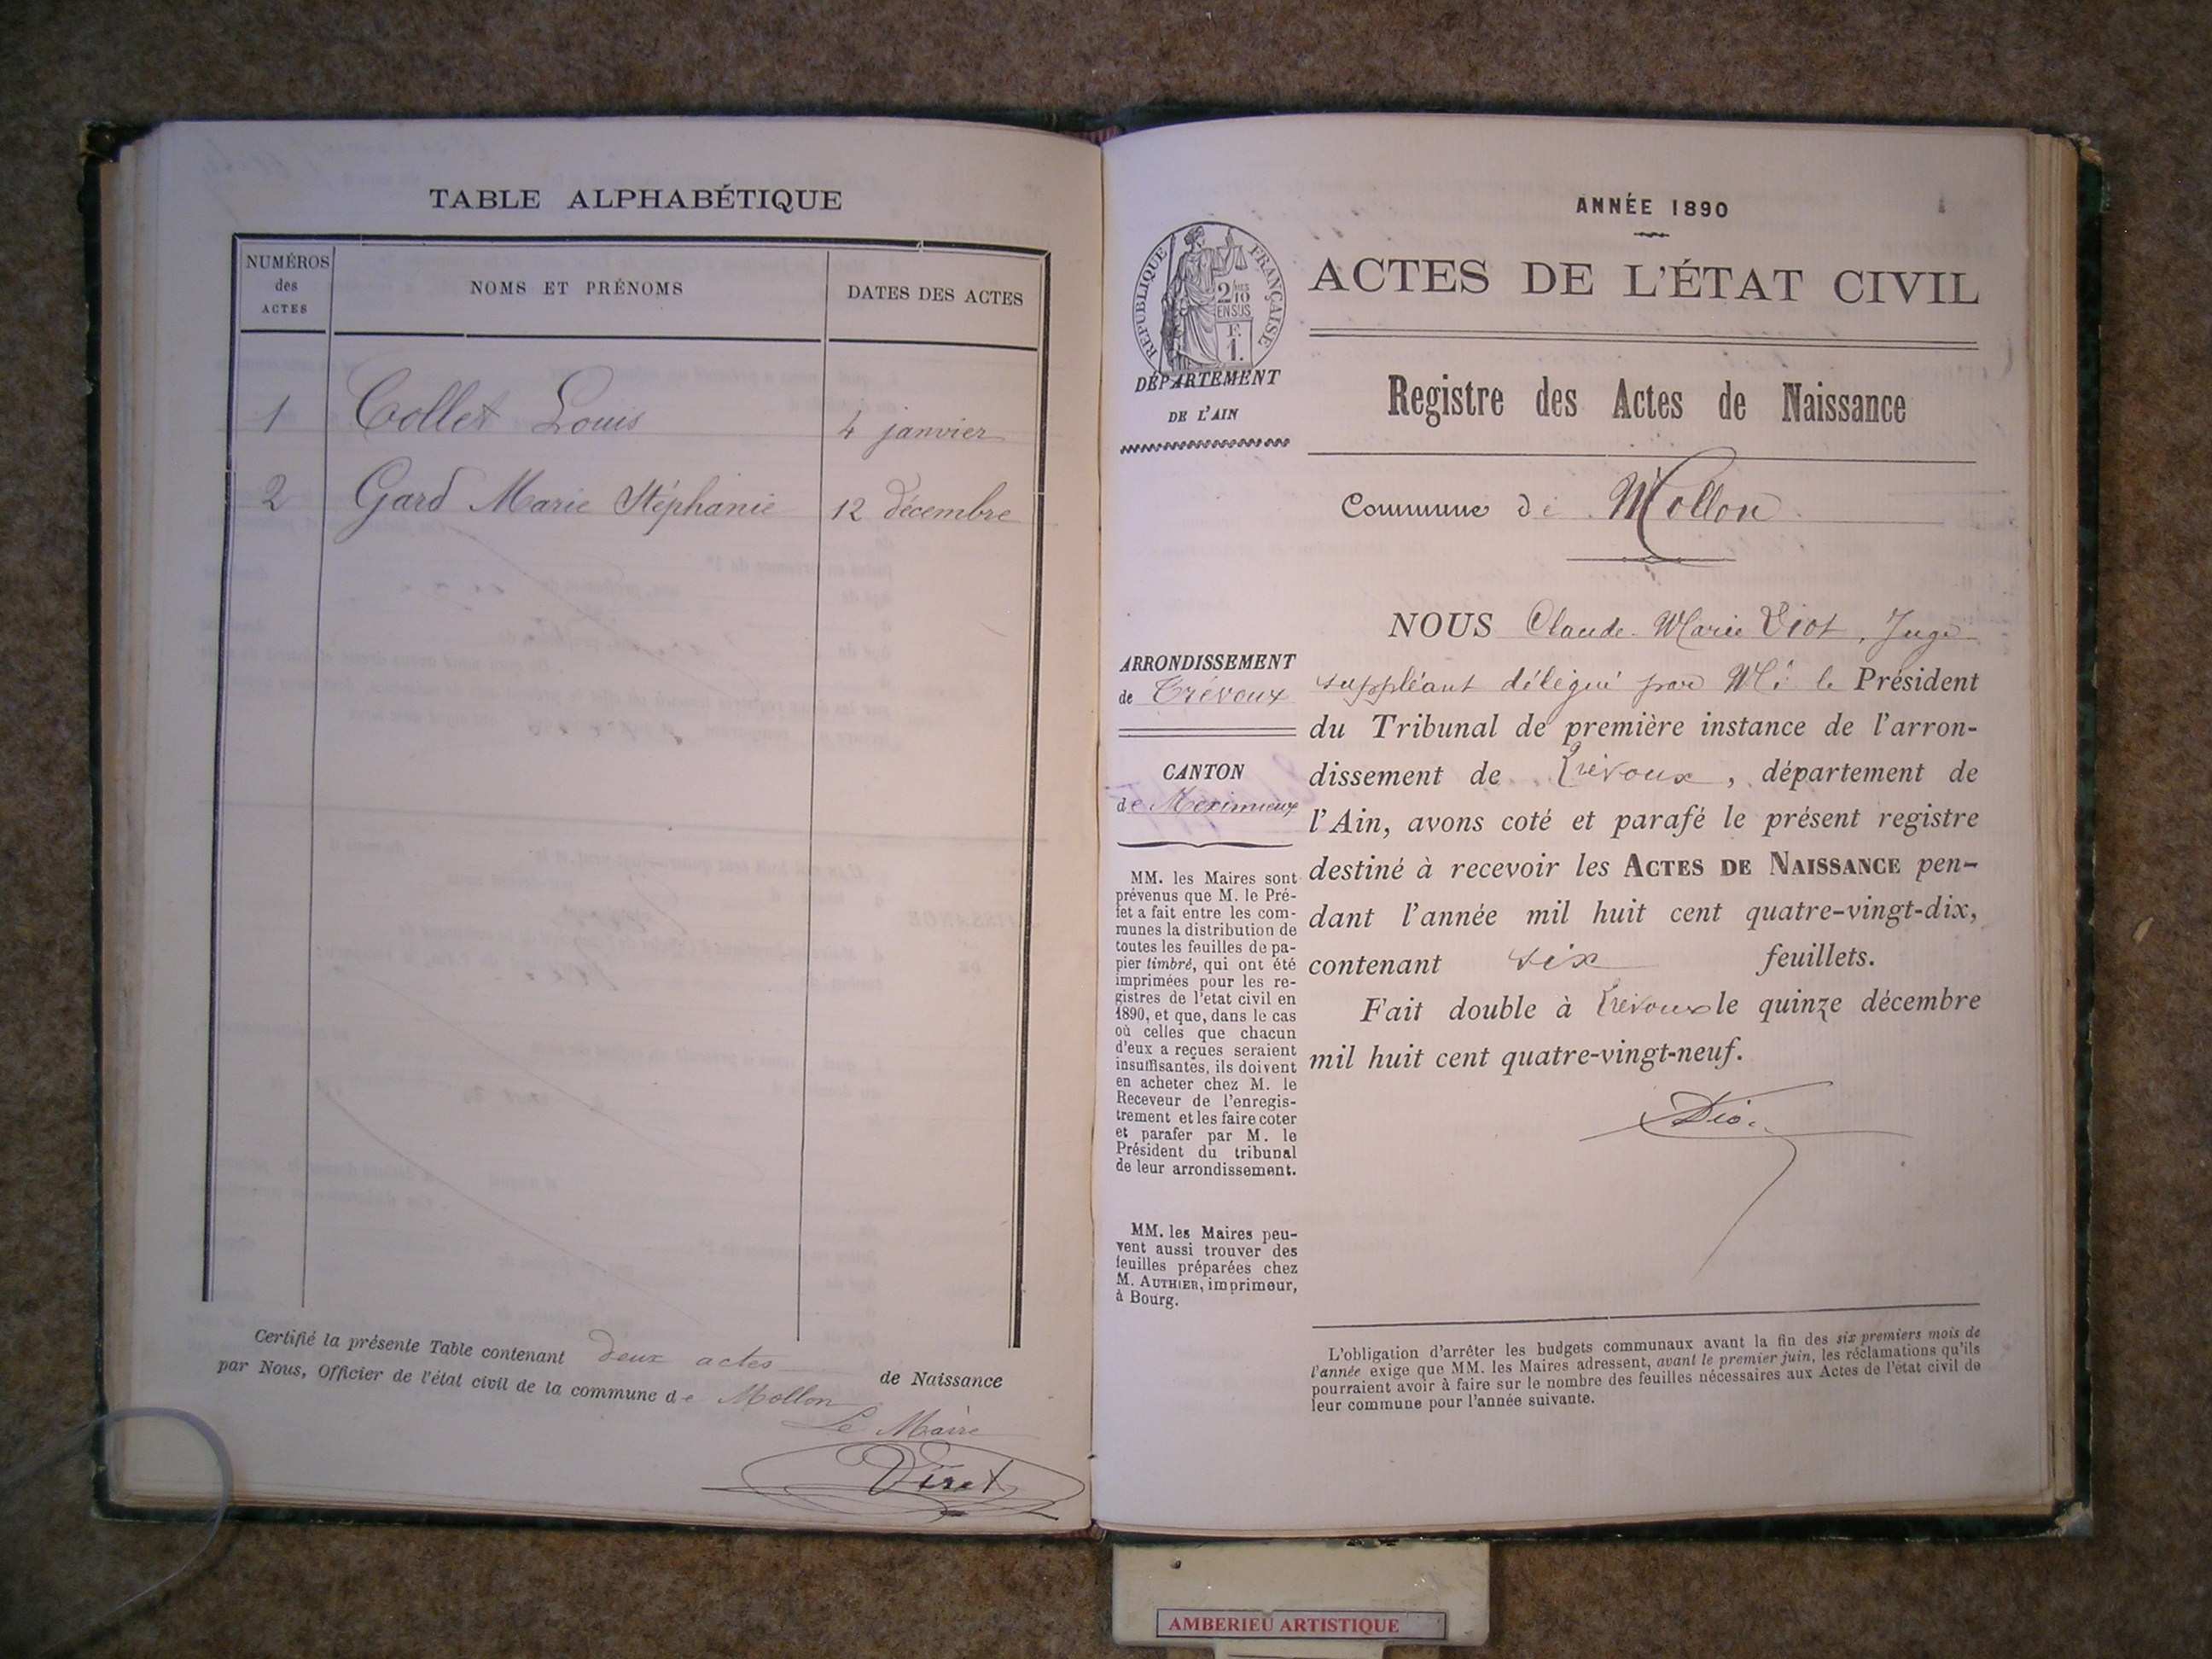 TABLE ALPHABÉTIQUE
NUMÉROS
des
ACTES
NOMS ET PRÉNOMS
DATES DES ACTES
1 Collet Louis 4 janvier
2 Gard Marie Stéphanie 12 décembre
Certifié la présente Table contenant deux actes de Naissance
par Nous, Officier de l'état civil de la commune de Mollon
Le Maire
Viret
ANNÉE 1890
RÉPUBLIQUE FRANÇAISE
2/10
EN SUS
F.
1.
DÉPARTEMENT
DE L'AIN
ACTES DE L'ÉTAT CIVIL
Registre des Actes de Naissance
Commune de Mollon
ARRONDISSEMENT
de Trévoux
CANTON
de Meximieux
MM. les Maires sont
prévenus que M. le Pré-
fet a fait entre les com-
munes la distribution de
toutes les feuilles de pa-
pier timbré, qui ont été
imprimées pour les re-
gistres de l'etat civil en
1890, et que, dans le cas
où celles que chacun
d'eux a reçues seraient
insuffisantes, ils doivent
en acheter chez M. le
Receveur de l'enregis-
trement et les faire coter
et parafer par M. le
Président du tribunal
de leur arrondissement.
MM. les Maires peu-
vent aussi trouver des
feuilles préparées chez
M. AUTHIER, imprimeur,
à Bourg.
NOUS Claude-Marie Diot, Juge
suppléant délégué par Mr le Président
du Tribunal de première instance de l'arron-
dissement de Trévoux, département de
l'Ain, avons coté et parafé le présent registre
destiné à recevoir les ACTES DE NAISSANCE pen-
dant l'année mil huit cent quatre-vingt-dix,
contenant six feuillets.
Fait double à Trévoux le quinze décembre
mil huit cent quatre-vingt-neuf.
L'obligation d'arrêter les budgets communaux avant la fin des six premiers mois de
l'année exige que MM. les Maires adressent, avant le premier juin, les réclamations qu'ils
pourraient avoir à faire sur le nombre des feuilles nécessaires aux Actes de l'état civil de
leur commune pour l'année suivante.
AMBERIEU ARTISTIQUE